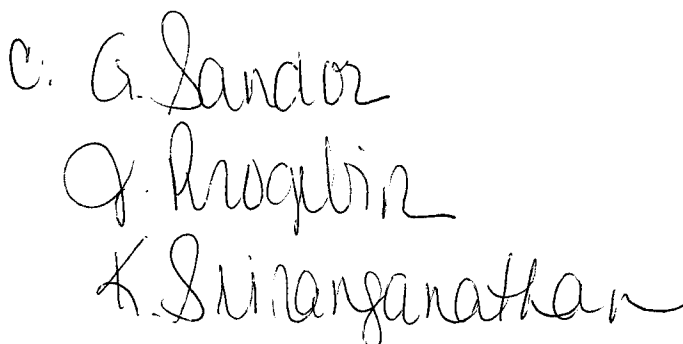 c: G. Sandor
J. Progibin
K. Sriranganathan